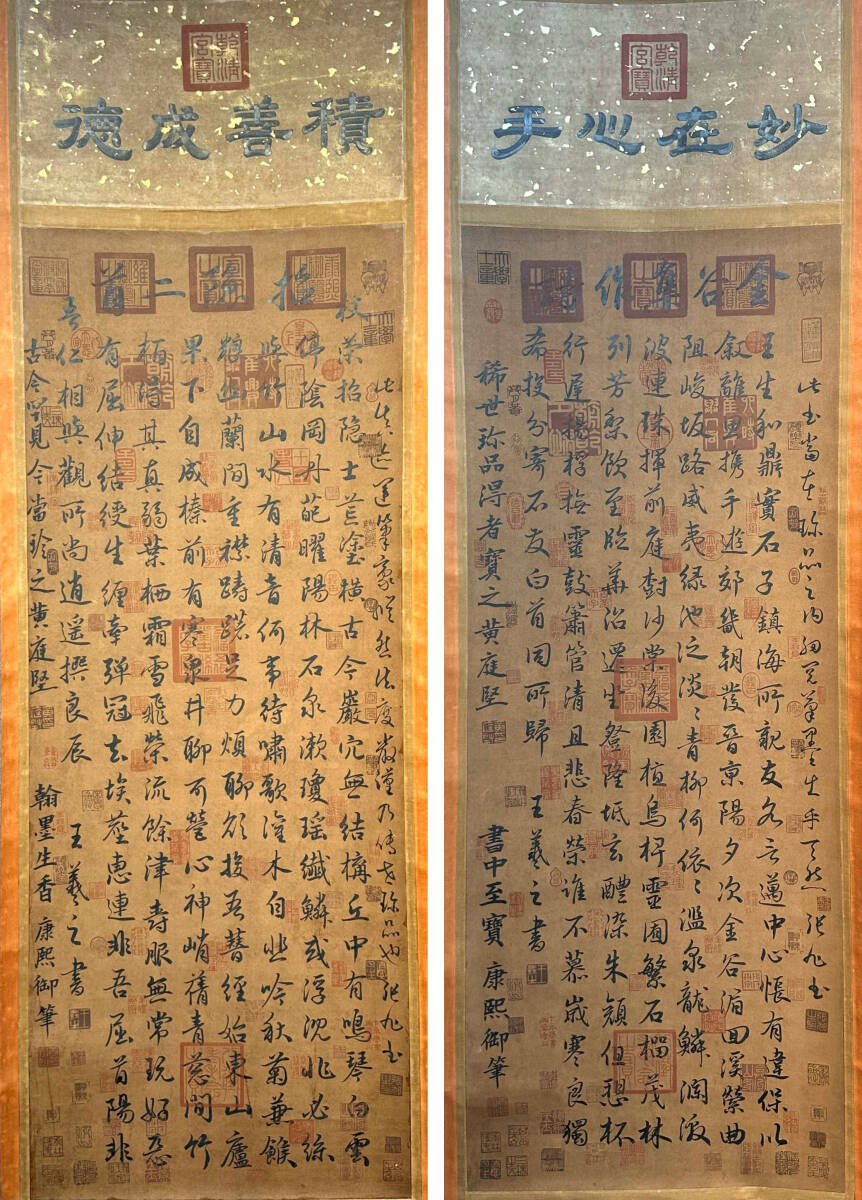 乾清宮寶
妙在心手
金谷集作詩
此書當在珍品之內細觀筆墨生乎天然張旭書
王生和鼎實石子鎮海沂親友各言邁中心悵有違保以
叙離思携手遊郊畿朝發晉京陽夕次金谷湄回溪縈曲
阻峻坂路威夷綠池泛淡淡青柳何依依濫泉龍鱗瀾激
波連珠揮前庭樹沙棠後園植烏椑靈囿繁石榴茂林
列芳梨飲至臨華沼遷坐登隆坻玄醴染朱顏但愬杯
行遲揚桴撫靈鼓簫管清且悲春榮誰不慕歲寒良獨
希投分寄石友白首同所歸
王羲之書
稀世珍品得者寶之黃庭堅
書中至寶 康熙御筆
乾清宮寶
積善成德
招隱二首
運筆豪縱然法度嚴謹乃傳世珍品也張旭書
杖策招隐士荒塗橫古今巖穴無結構丘中有鳴琴白雲
停陰岡丹葩曜陽林石泉漱瓊瑤纖鱗或浮沈非必絲
與竹山水有清音何事待嘯歌灌木自悲吟秋菊兼餱
糧幽蘭間重襟躊躇足力煩聊欲投吾簪經始東山廬
果下自成榛前有寒泉井聊可瑩心神峭蒨青蔥間竹
柏得其真弱葉栖霜雪飛榮流餘津爵服無常玩好惡
有屈伸結綬生纏牽彈冠去埃塵惠連非吾屈首陽非
吾仁相與觀所尚逍遙撰良辰
王羲之書
古今罕見今當珍之黃庭堅
翰墨生香 康熙御筆